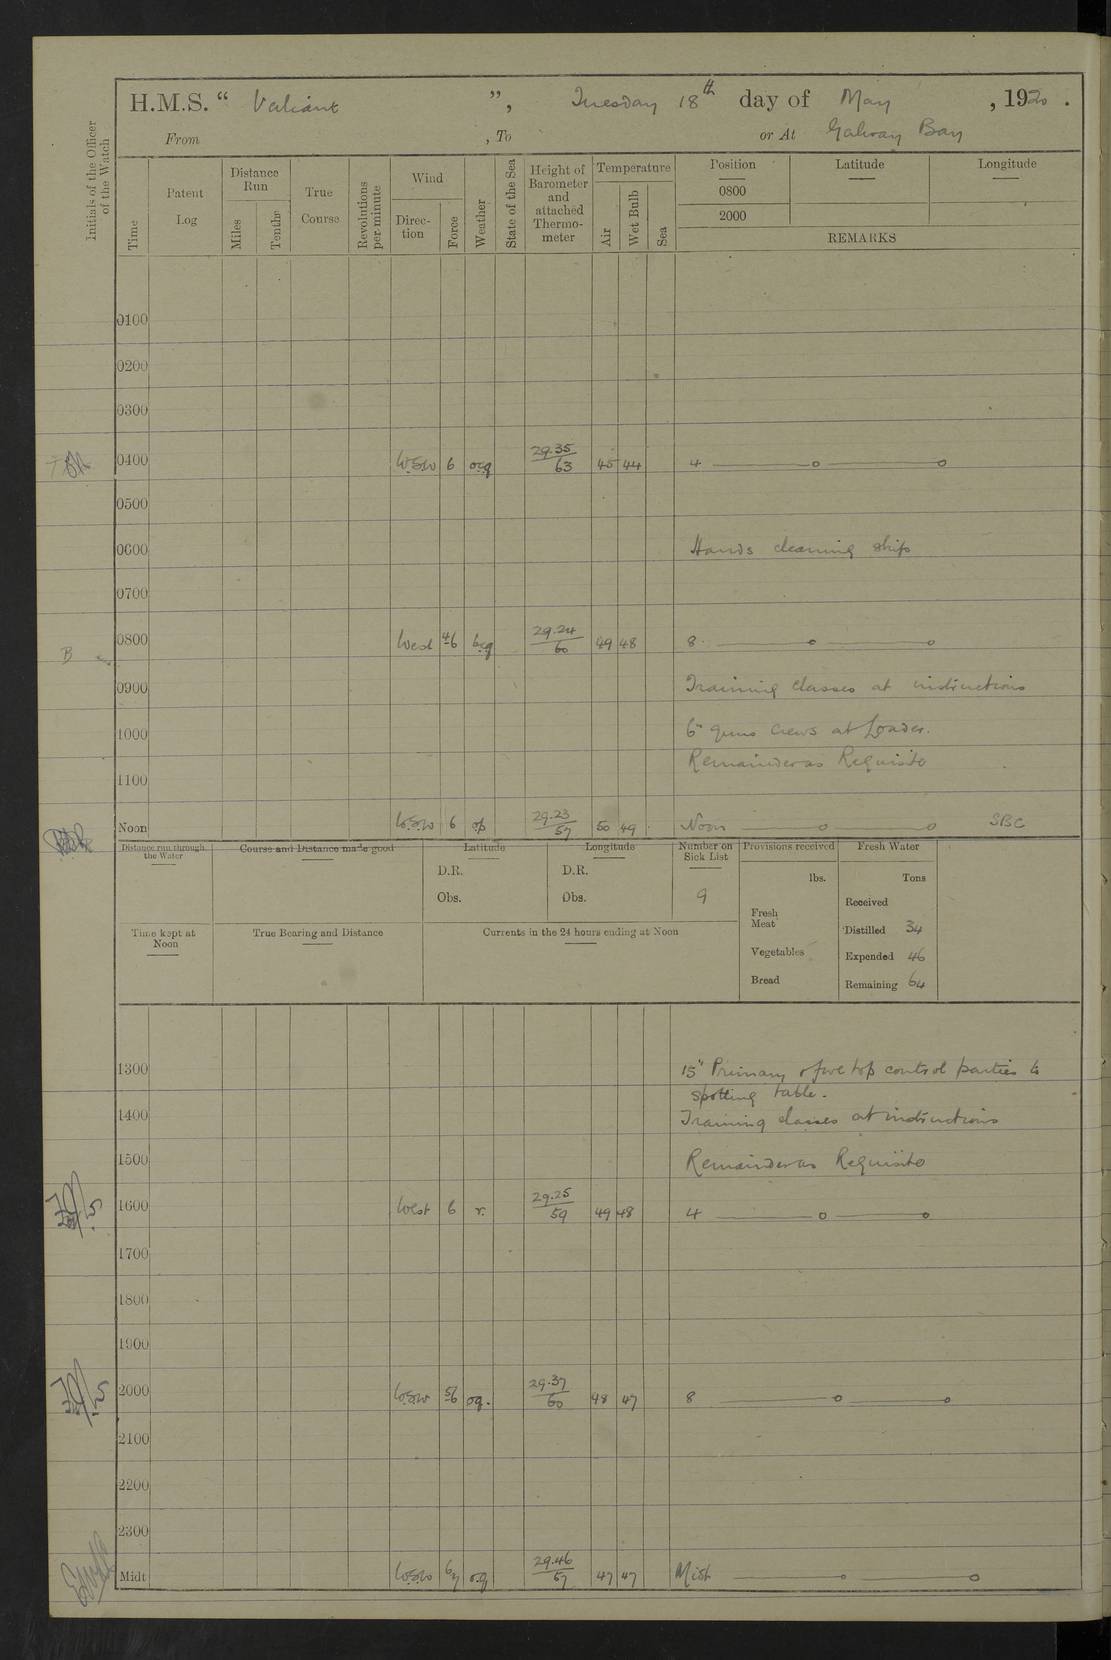 H.M.S. “ Valiant ”, Tuesday 18th day of May , 1920 .
From , To or At Galway Bay
Initials of the Officer of the Watch
Time
Patent Log
Distance Run
Miles
Tenths
True Course
Revolutions per minute
Wind
Direc- tion
Force
Weather
State of the Sea
Height of Barometer and attached Thermo- meter
Temperature
Air
Wet Bulb
Sea
Position Latitude Longitude
0800
2000
REMARKS
0100
0200
0300
0400 WSW 6 ocq 29.35/63 45 44 4
0500
0600 Hands cleaning ship
0700
B
0800 West 4-6 bcq 29.24/60 49 48 8
0900 Training classes at instructions
1000 6" guns crews at Loader.
Remainder as Requisite
1100
Noon WSW 6 op 29.23/57 50 49 Noon SBC
Distance run through the Water
Course and Distance made good
Latitude
D.R.
Obs.
Longitude
D.R.
Obs.
Number on Sick List
9
Provisions received
lbs.
Fresh Meat
Vegetables
Bread
Fresh Water
Tons
Received
Distilled 34
Expended 46
Remaining 64
Time kept at Noon
True Bearing and Distance
Currents in the 24 hours ending at Noon
1300 15" Primary & fore top control parties to
spotting table.
1400 Training classes at instructions
1500 Remainder as Requisite
1600 West 6 r. 29.25/59 49 48 4
1700
1800
1900
2000 WSW 5/6 oq. 29.37/60 48 47 8
2100
2200
2300
Midt WSW 6/7 o.q 29.46/57 47 47 Midt